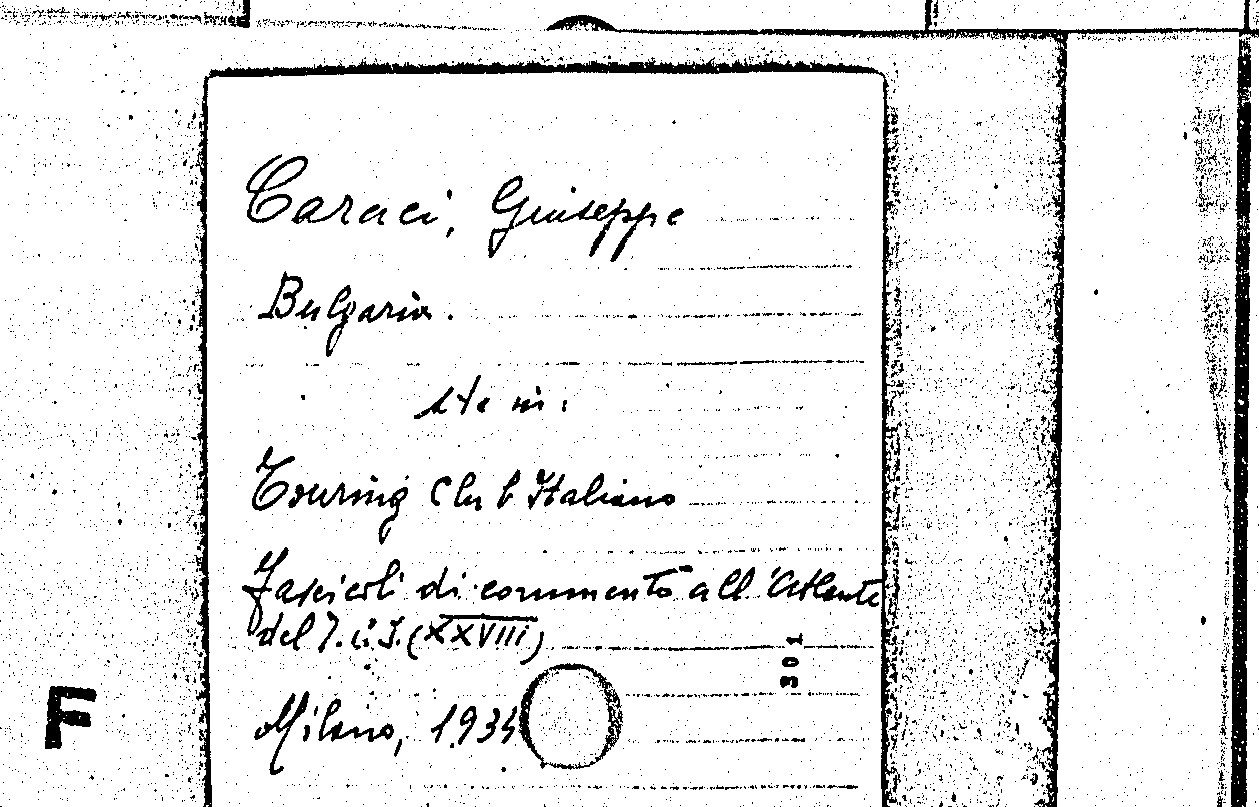 Caraci, Giuseppe
Bulgaria.
Touring Club Italiano
Fascicoli di commento all'Atlante
del T.C.I. (XXVIII)
301
F
Milano, 193